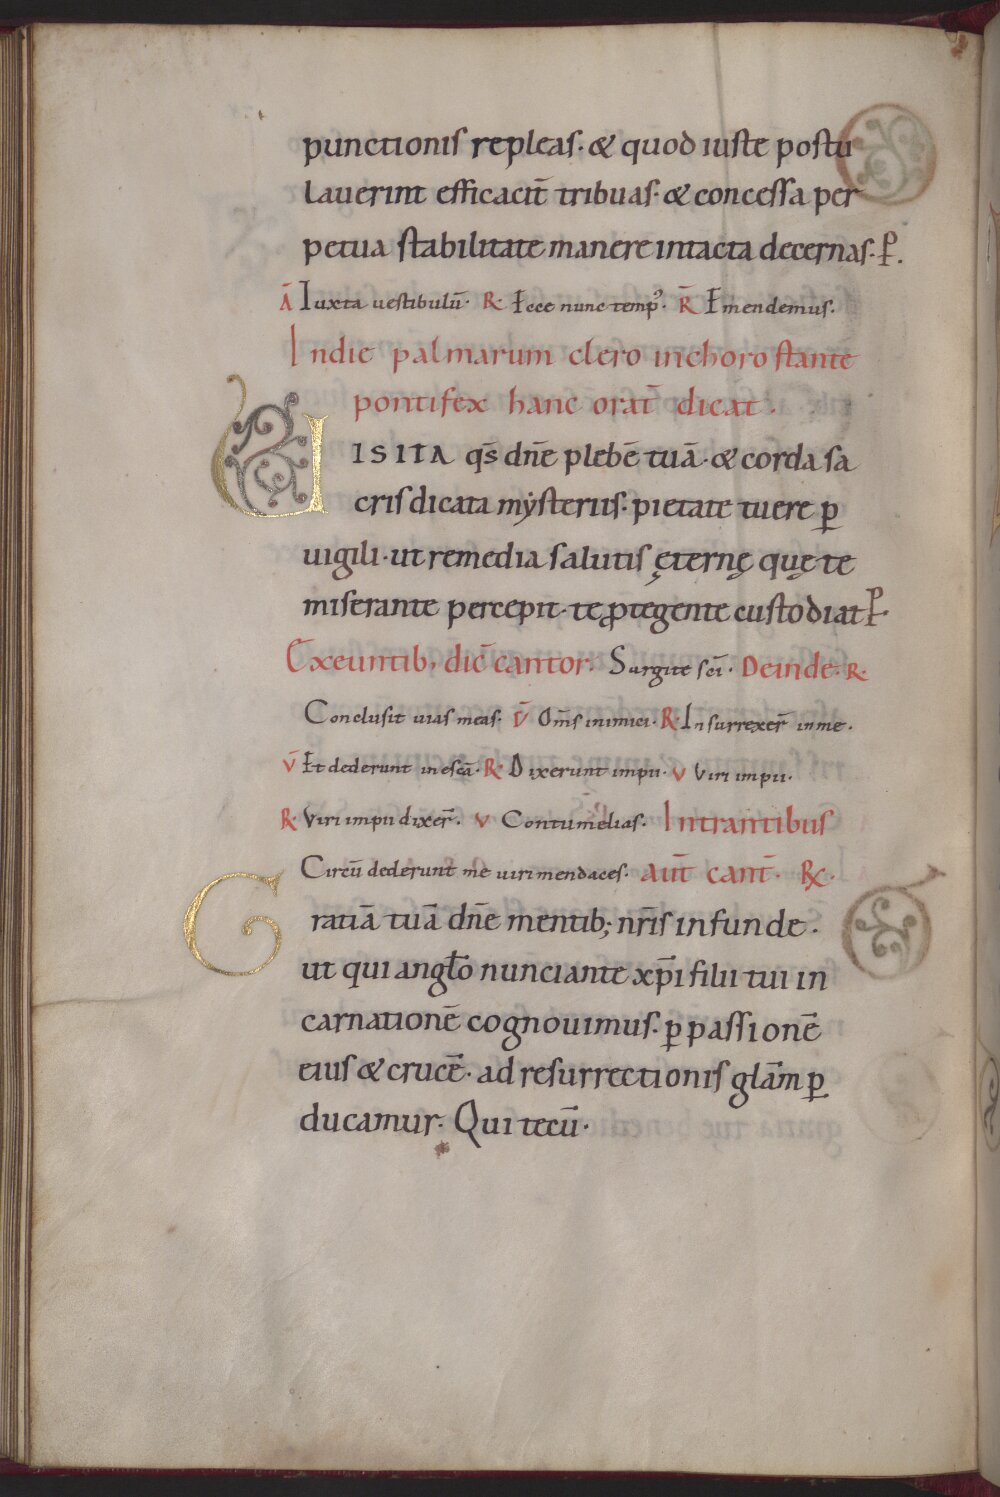 punctionis repleas· & quod iuste postu
lauerint efficacit̄ tribuas· & concessa per
petua stabilitate manere intacta decernas· P̄.
Ā Iuxta uestibulū· R· Ecce nunc temp᾽· R̄ Emendemus.
Indie palmarum clero inchoro stante
pontifex hanc orat̄ dicat·
UISITA q̄s dn̄e plebē tuā· & corda sa
cris dicata mẏsteriis· pietate tuere ꝑ
uigili· ut remedia salutis ęternę quę te
miserante percepit· te ꝓtegente custodiat P̄·
Exeuntib; dic̄ cantor· Surgite sc̄i· Deinde· R·
Conclusit uias meas· V̄ Om̄s inimici· R· Insurrexer̄ inme·
V̄ Et dederunt inescā· R· Dixerunt impii· V Viri impii·
R Viri impii dixer̄· V Contumelias· Intrantibus
Circū dederunt me uiri mendaces· aut̄ cant̄· R·
Gratiā tuā dn̄e mentib; nr̄is infunde·
ut qui angl̄o nunciante xp̄i filii tui in
carnationē cognouimus· ꝑ passionē
eius & crucē· ad resurrectionis glām ꝑ
ducamur· Qui tecū·